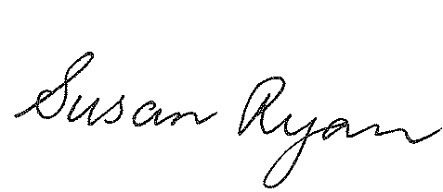 Susan Ryan